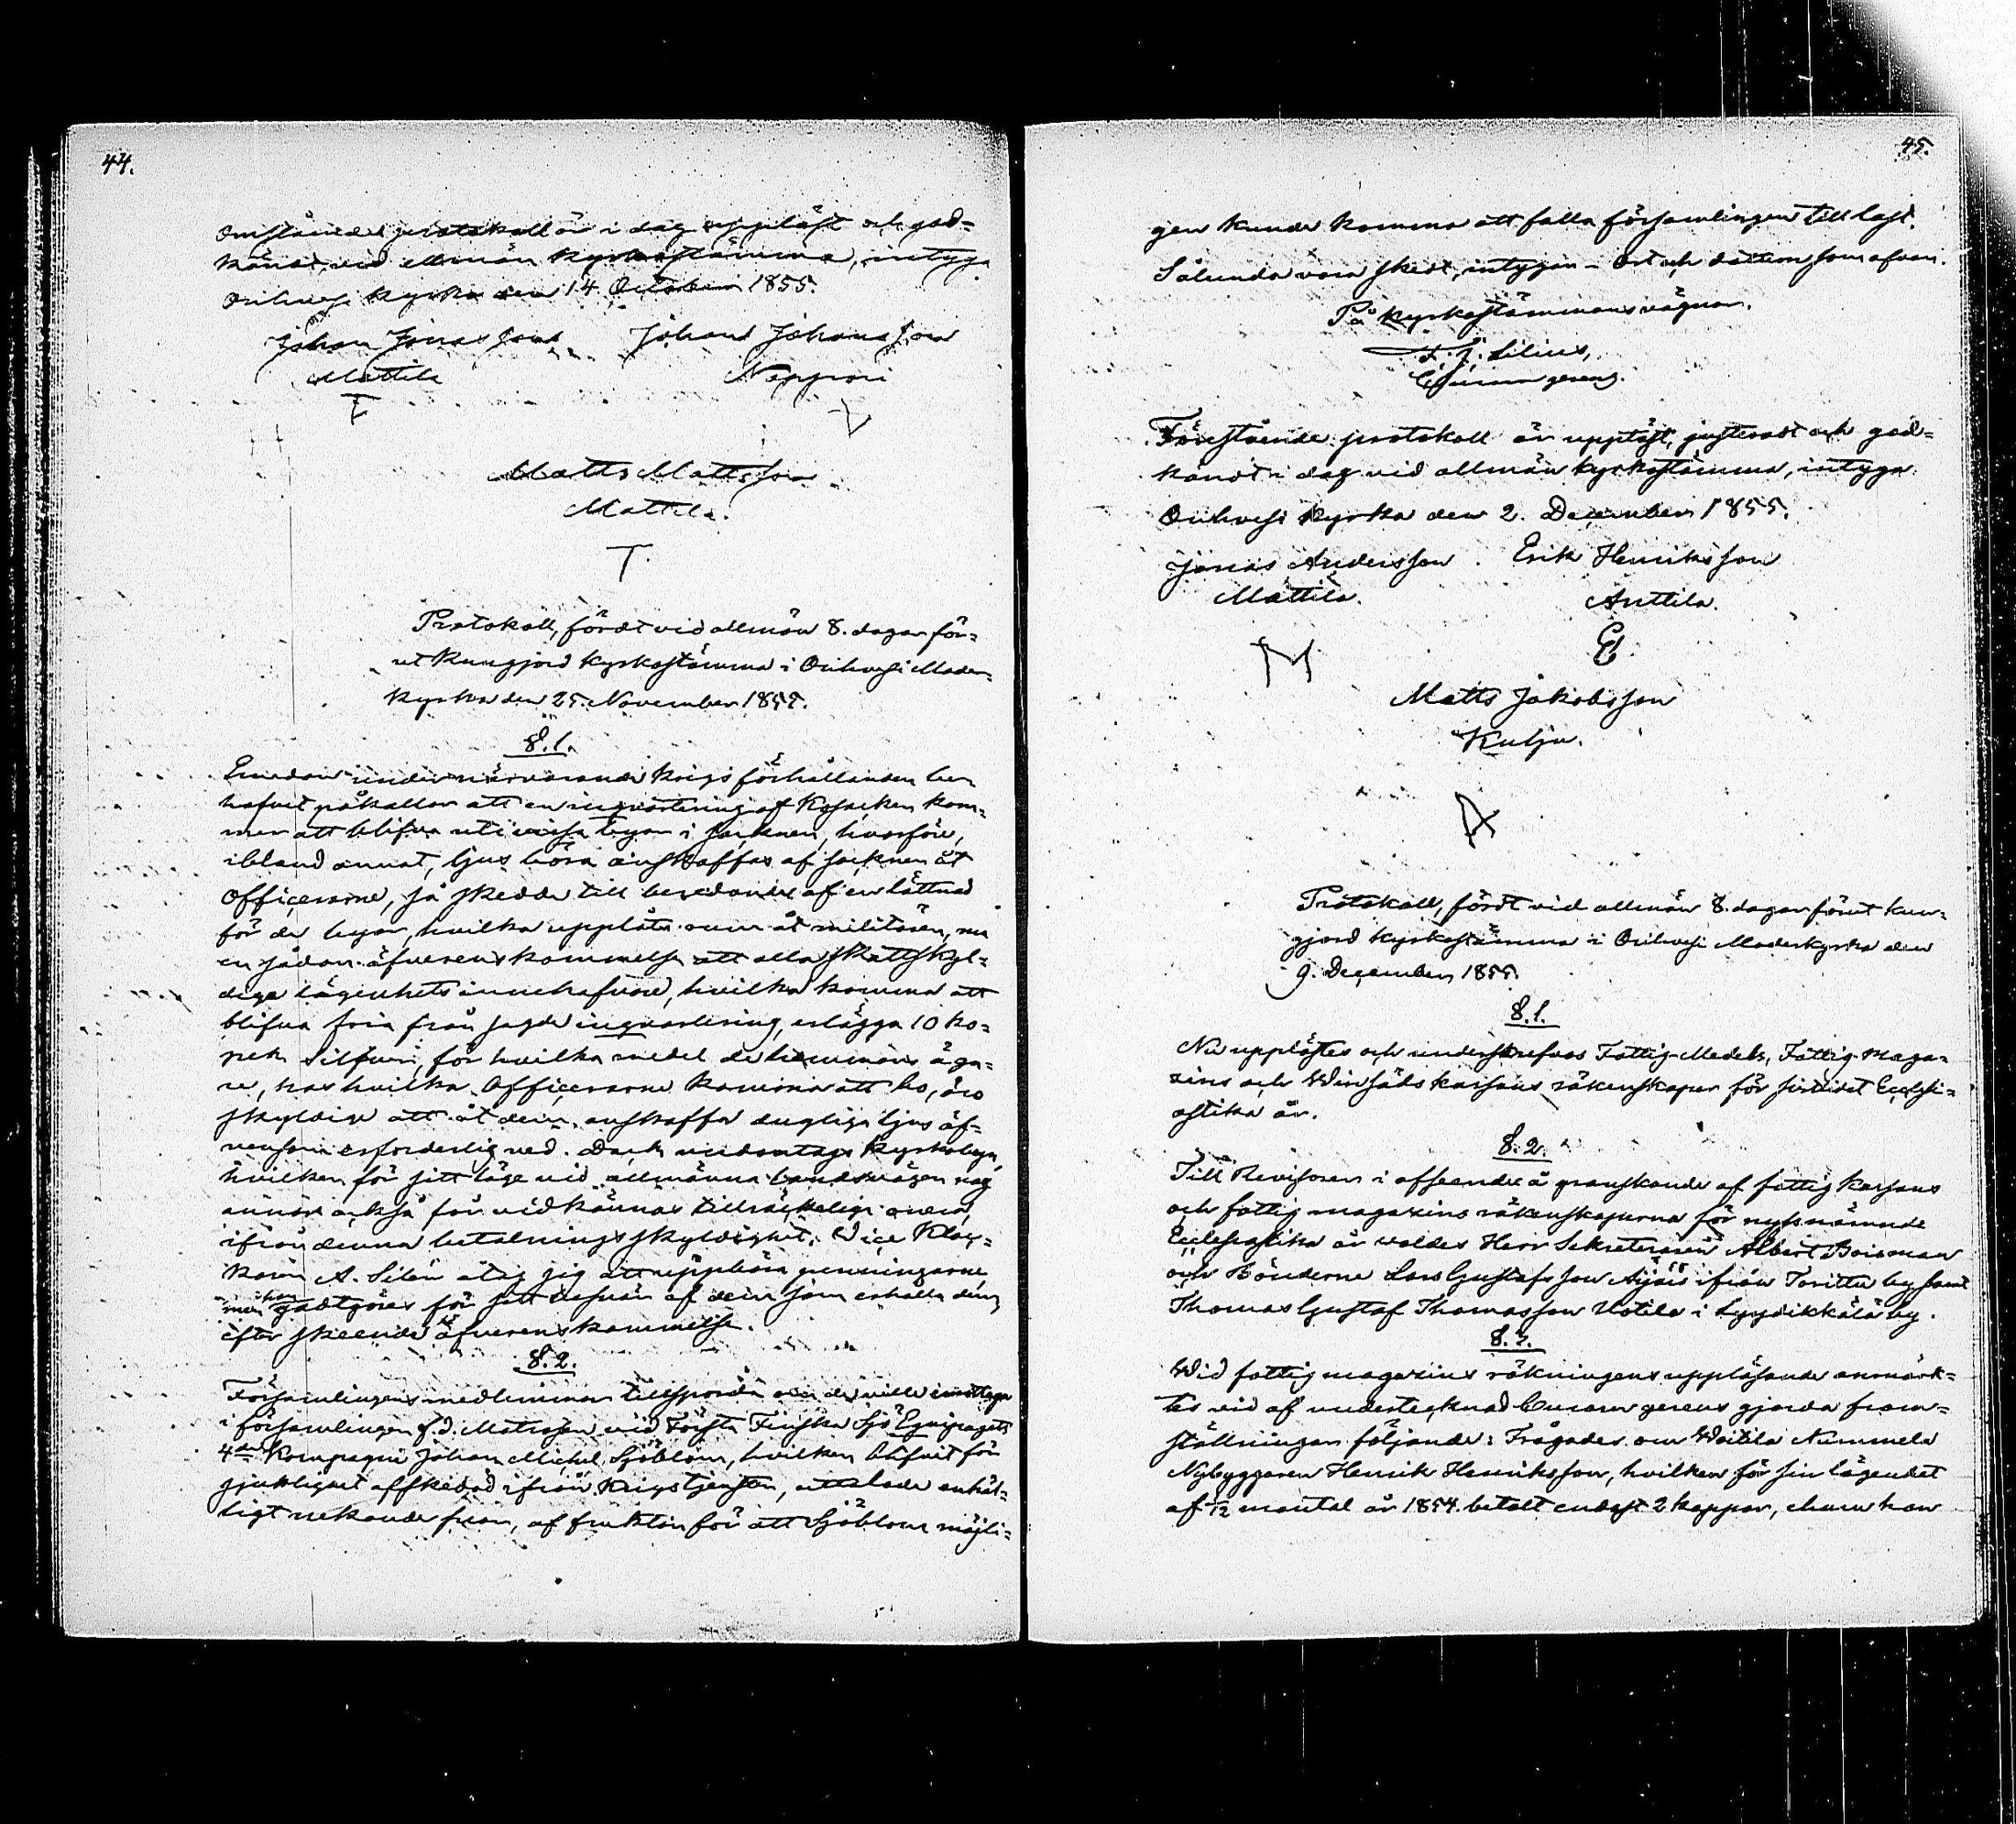 44.
Omstående protokoll är i dag uppläst och god=
kändt vid allmän kyrkostämma, intyga
Orihvesi kyrka den 14 October 1855.
Johan Jonasson Johan Johansson
Mattila Neppari
Matts Mattsson
Mattila.
T.
Protokoll, fördt vid allmän 8. dagar för=
ut kungjord kyrkostämma i Orihvesi Moder=
kyrka den 25. November 1855.
§.1.
Emedan under närvarande krigsförhållanden be
hofvet påkallar att en inqvartering af Kosacker kom=
mer att blifva uti vissa byar i socknen, hvarföre,
ibland annat, ljus böra anskaffas af socknen åt
Officerarne, så skedde till beredande af en lättnad
för de byar, hvilka upplåta rum åt militären, nu
en sådan äfverenskommelse att alla skattskyl=
dige lägenhets innehafvare, hvilka komma att
blifva fria från sagde inqvartering, erlägga 10 ko=
pek Silfver, för hvilka medel de hemmans äga=
re, hos hvilka Officerarne komma att bo, äro
skyldige att åt dem anskaffa dugliga ljus äf=
vensom erforderlig ved. Dock undantages Kyrkobyn,
hvilken för sitt läge vid allmänna landsvägen nog
annars också får vidkännas tillräckeligt onera,
ifrån denna betalningsskyldighet. Vice Kloc=
karen A. Silén åtog sig att uppbära penningarne,
men han godtgöres för sitt besvär af dem som erhålla dem,
efter skeende äfverenskommelse.
§.2.
Församlingens medlemmar tillsporda om de ville emottaga
i församlingen f.d. Matrosen vid Första Finska Sjö Equipagets
4de Kompagni Johan Michel Sjöblom, hvilken blifvit för
sjuklighet afskedad ifrån Krigstjensten, uttalade enhäl=
ligt nekande svar, af fruktan för att Sjöblom möjli=
45.
gen kunde komma att falla församlingen till last.
Sålunda vara skedt, intygar – Ort och datum som ofvan.
På kyrkostämmans vägnar.
F. J. Lilius,
Curam gerens.
Förestående protokoll är uppläst, justeradt och god=
kändt i dag vid allmän kyrkostämma, intyga
Orihvesi kyrka den 2. December 1855.
Jonas Andersson Erik Henriksson
Mattila. Anttila.
M E
Matts Jakobsson
Kulju.
Protokoll, fördt vid allmän 8. dagar förut kun=
gjord kyrkostämma i Orihvesi Moderkyrka den
9. December 1855.
§.1.
Nu upplästes och underskrefvos Fattig-Medels, Fattig-maga=
zins och Winsäds kassans räkenskaper för sistlidet Ecclesi=
astika år.
§.2.
Till Revisorer i afseende å granskande af fattig kassans
och fattig magazins räkenskaperna för nyss nämnde
Ecclesiastika år valdes Herr Sekreteraren Albert Boisman
och Bönderne Lars Gustafsson Äijälä ifrån Torittu by samt
Thomas Gustaf Thomasson Uotila i Lyydikkälä by.
§.3.
Wid fattig magazins räkningens uppläsande anmärk=
tes vid af undertecknad Curam gerens gjorda fram=
ställningar följande: Frågades om Waitila Nummela
Nybyggaren Henrik Henriksson, hvilken för sin lägenhet
af 1/12 mantal år 1854 betalt endast 2 kappar, ehuru han